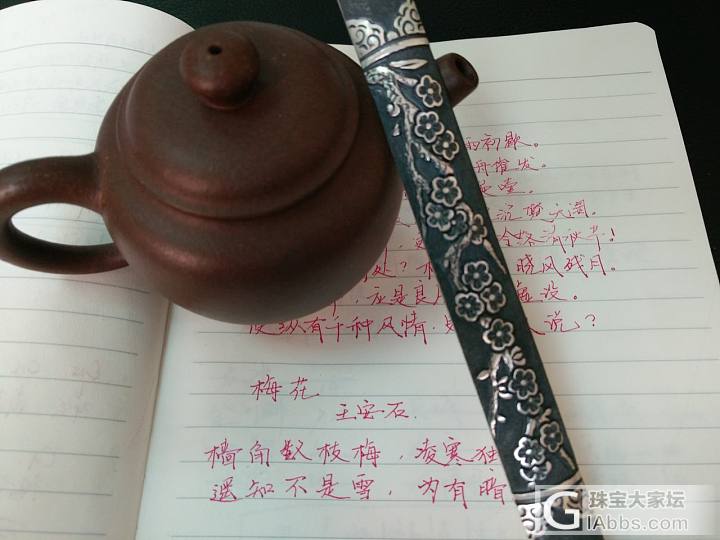 雨初歇。
舟催发。
噎。
沉楚天阔。
冷落清秋节！
处？杨 晓风残月。
应是良 虚设。
便纵有千种风情， 人说？
梅花
王安石.
墙角数枝梅，凌寒独
遥知不是雪，为有暗
珠宝大家坛
GIAbbs.com